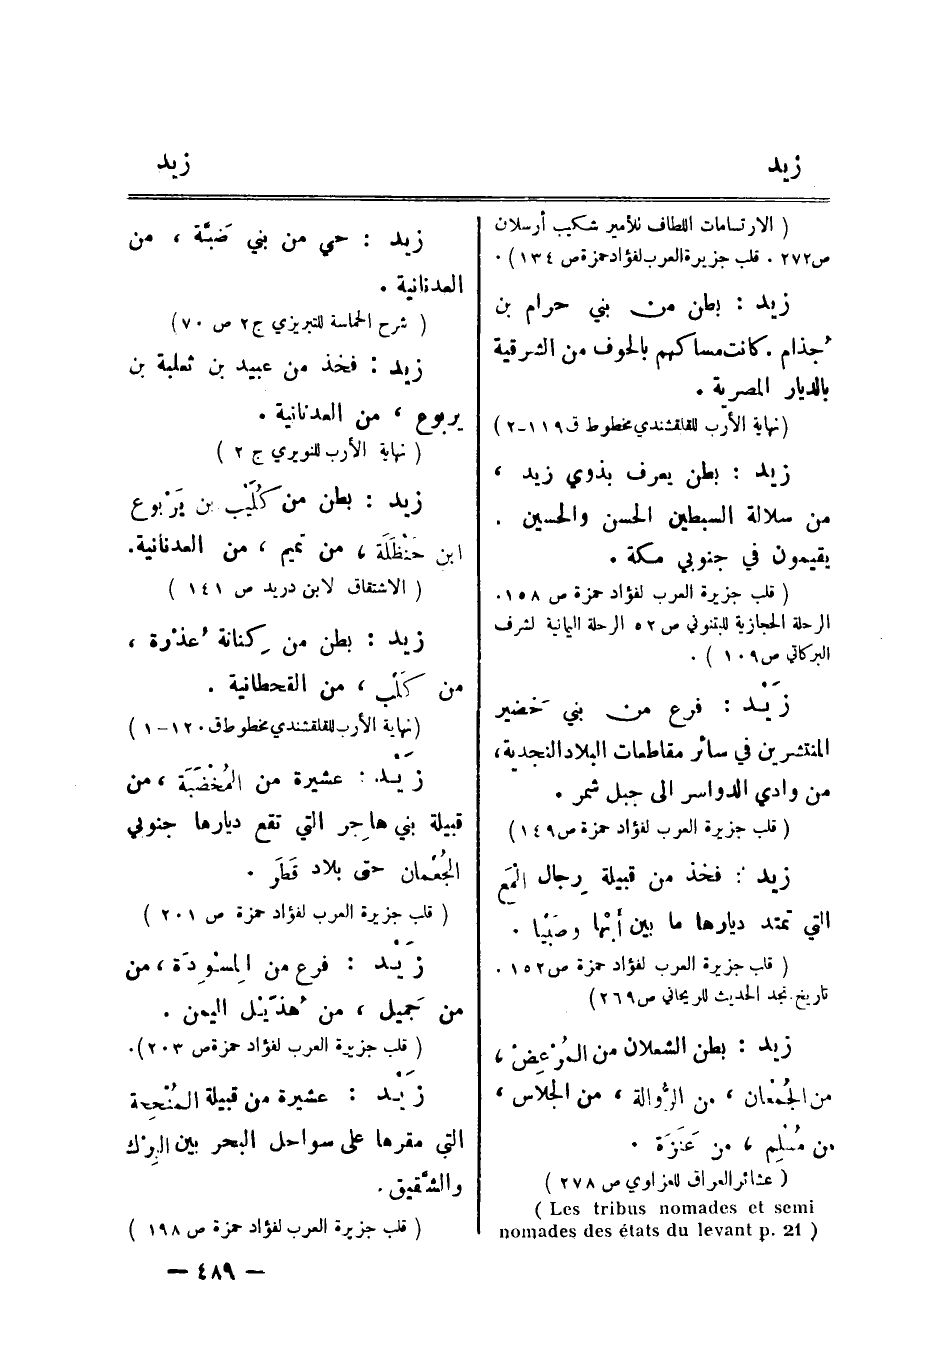 زيد
زيد
( الارتسامات اللطاف للأمير شكيب أرسلان
ص٢٧٢ . قلب جزيرة العرب لفؤاد حمزة ص ١٣٤ ) .
زيد : بطن من بني حرام بن
جُذام . كانت مساكنهم بالحوف من الشرقية
بالديار المصرية .
(نهاية الأرب للقلقشندي مخطوط ق ١١٩-٢)
زيد : بطن يعرف بذوي زيد ،
من سلالة السبطين الحسن والحسين .
يقيمون في جنوبي مكة .
( قلب جزيرة العرب لفؤاد حمزة ص ١٥٨.
الرحلة الحجازية للبتنوني ص ٥٢ الرحلة اليمانية لشرف
البركاتي ص ١٠٩ ) .
زَيْد : فرع من بني خَضير
المنتشرين في سائر مقاطعات البلاد النجدية،
من وادي الدواسر الى جبل شمر .
( قلب جزيرة العرب لفؤاد حمزة ص١٤٩)
زيد : فخذ من قبيلة رِجال ألمَع
التي تمتد ديارها ما بين أَبْها وصَبْيا .
( قلب جزيرة العرب لفؤاد حمزة ص١٥٢ .
تاريخ نجد الحديث للريحاني ص٢٦٩)
زيد : بطن الشعلان من المُرْعِض ،
من الجُمْعان ، من الرُّوالة ، من الجلاس ،
من مُسْلِم ، من عَنَزَة .
( عشائر العراق للعزاوي ص ٢٧٨ )
( Les tribus nomades et semi
nomades des états du levant p. 21 )
زيد : حي من بني ضَبَّة ، من
العدنانية .
( شرح الحماسة للتبريزي ج٢ ص ٧٠)
زيد : فخذ من عبيد بن ثعلبة بن
يربوع ، من العدنانية .
( نهاية الأرب للنويري ج ٢ )
زيد : بطن من كُلَيْب بن يَرْبوع
ابن حَنْظَلَة ، من تميم ، من العدنانية.
( الاشتقاق لابن دريد ص ١٤١ )
زيد : بطن من كِنانة عُذْرة ،
من كَلْب ، من القحطانية .
(نهاية الأرب للقلقشندي مخطوط ق ١٢٠-١ )
زَيْد : عشيرة من المُخْضَبَة ، من
قبيلة بني هاجر التي تقع ديارها جنوبي
الجُعْمان حتى بلاد قَطَر .
( قلب جزيرة العرب لفؤاد حمزة ص ٢٠١ )
زَيْد : فرع من المِسْوِدَة ، من
من جَميل ، من هُذَيْل اليمن .
( قلب جزيرة العرب لفؤاد حمزة ص ٢٠٣).
زَيْد : عشيرة من قبيلة المُنْجِحة
التي مقرها على سواحل البحر بين البِرْك
والشُّقيق.
( قلب جزيرة العرب لفؤاد حمزة ص ١٩٨ )
— ٤٨٩ —